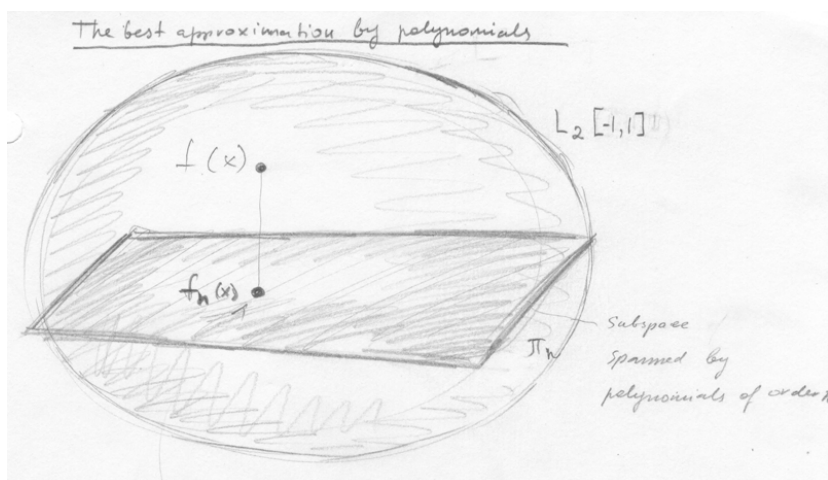 The best approximation by polynomials
L₂ [-1,1]
f(x)
fₙ(x)
Πₙ
Subspace
spanned by
polynomials of order n